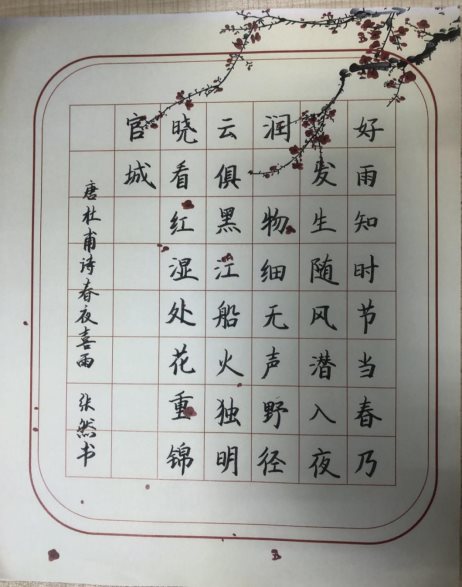 好雨知时节当春乃
发生随风潜入夜
润物细无声野径
云俱黑江船火独明
晓看红湿处花重锦
官城
唐杜甫诗春夜喜雨 张然书